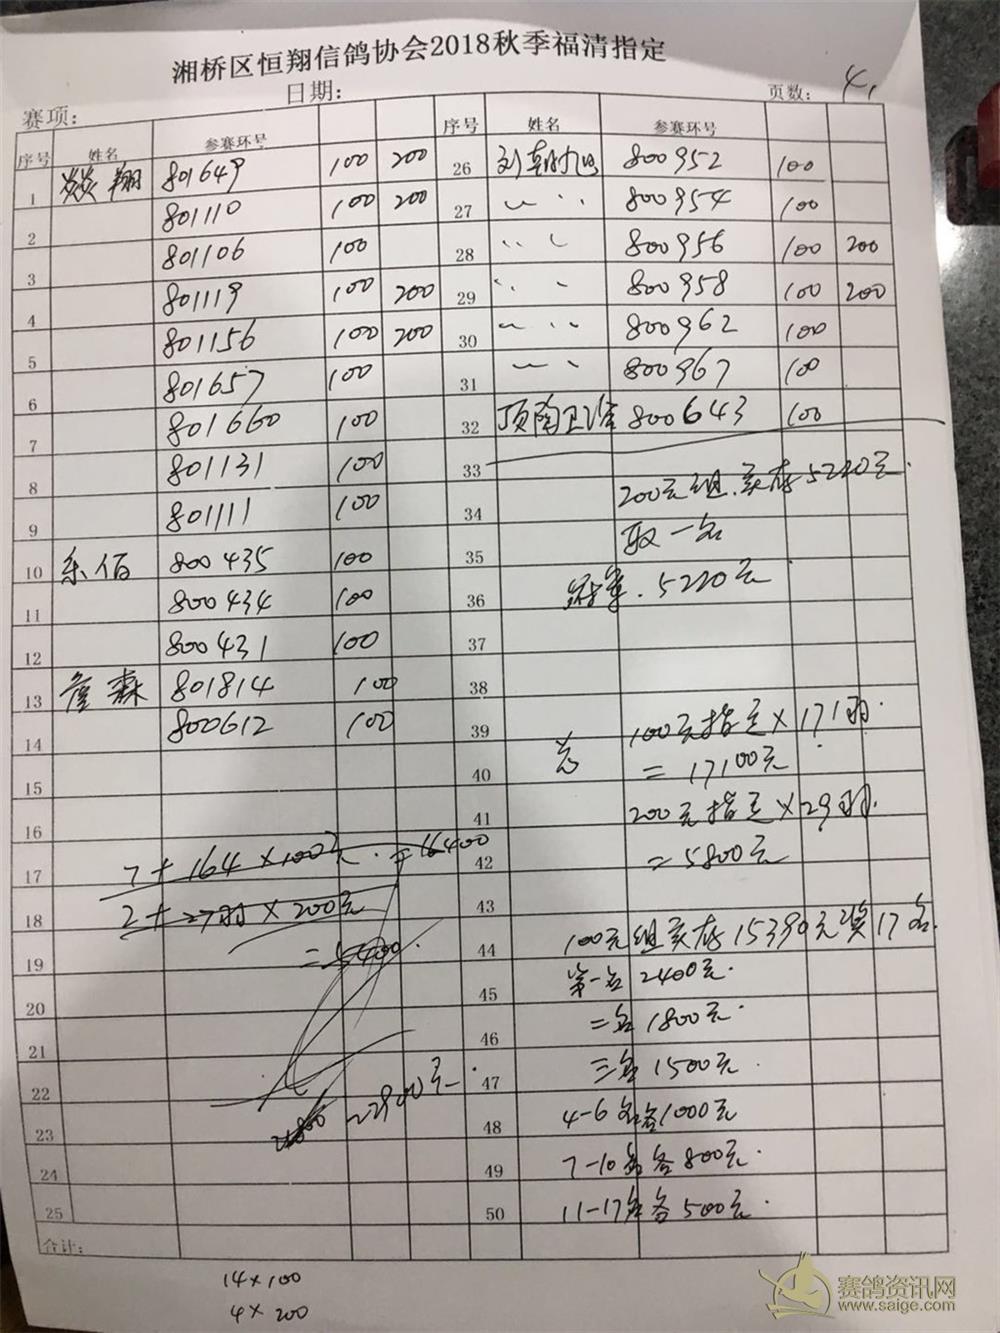 湘桥区恒翔信鸽协会2018秋季福清指定
赛项: 日期: 页数: 4,
序号 姓名 参赛环号 序号 姓名 参赛环号
1 焱翔 801649 100 200
2 801110 100 200
3 801106 100
4 801119 100 200
5 801156 100 200
6 801657 100
7 801660 100
8 801131 100
9 801111 100
10 乐佰 800435 100
11 800434 100
12 800431 100
13 詹森 801814 100
14 800612 100
15
16
17 7+164×100元.=16400
18 2+27羽×200元
19 =5400.
20
21
22
23 22900元
24
25
合计:
14×100
4×200
26 刘朝旭 800952 100
27 〃 800954 100
28 〃 800956 100 200
29 〃 800958 100 200
30 〃 800962 100
31 〃 800967 100
32 顶陶卫 800643 100
33
34 200元组.实存5220元.
35 取一名
36 5220元
37
38
39 100元指定×171羽.
40 =17100元
41 200元指定×29羽.
42 =5800元
43
44 100元组实存15390元奖17名.
45 第一名2400元.
46 二名1800元.
47 三名1500元.
48 4-6名各1000元
49 7-10名各800元.
50 11-17名各500元.
赛鸽资讯网
www.saige.com